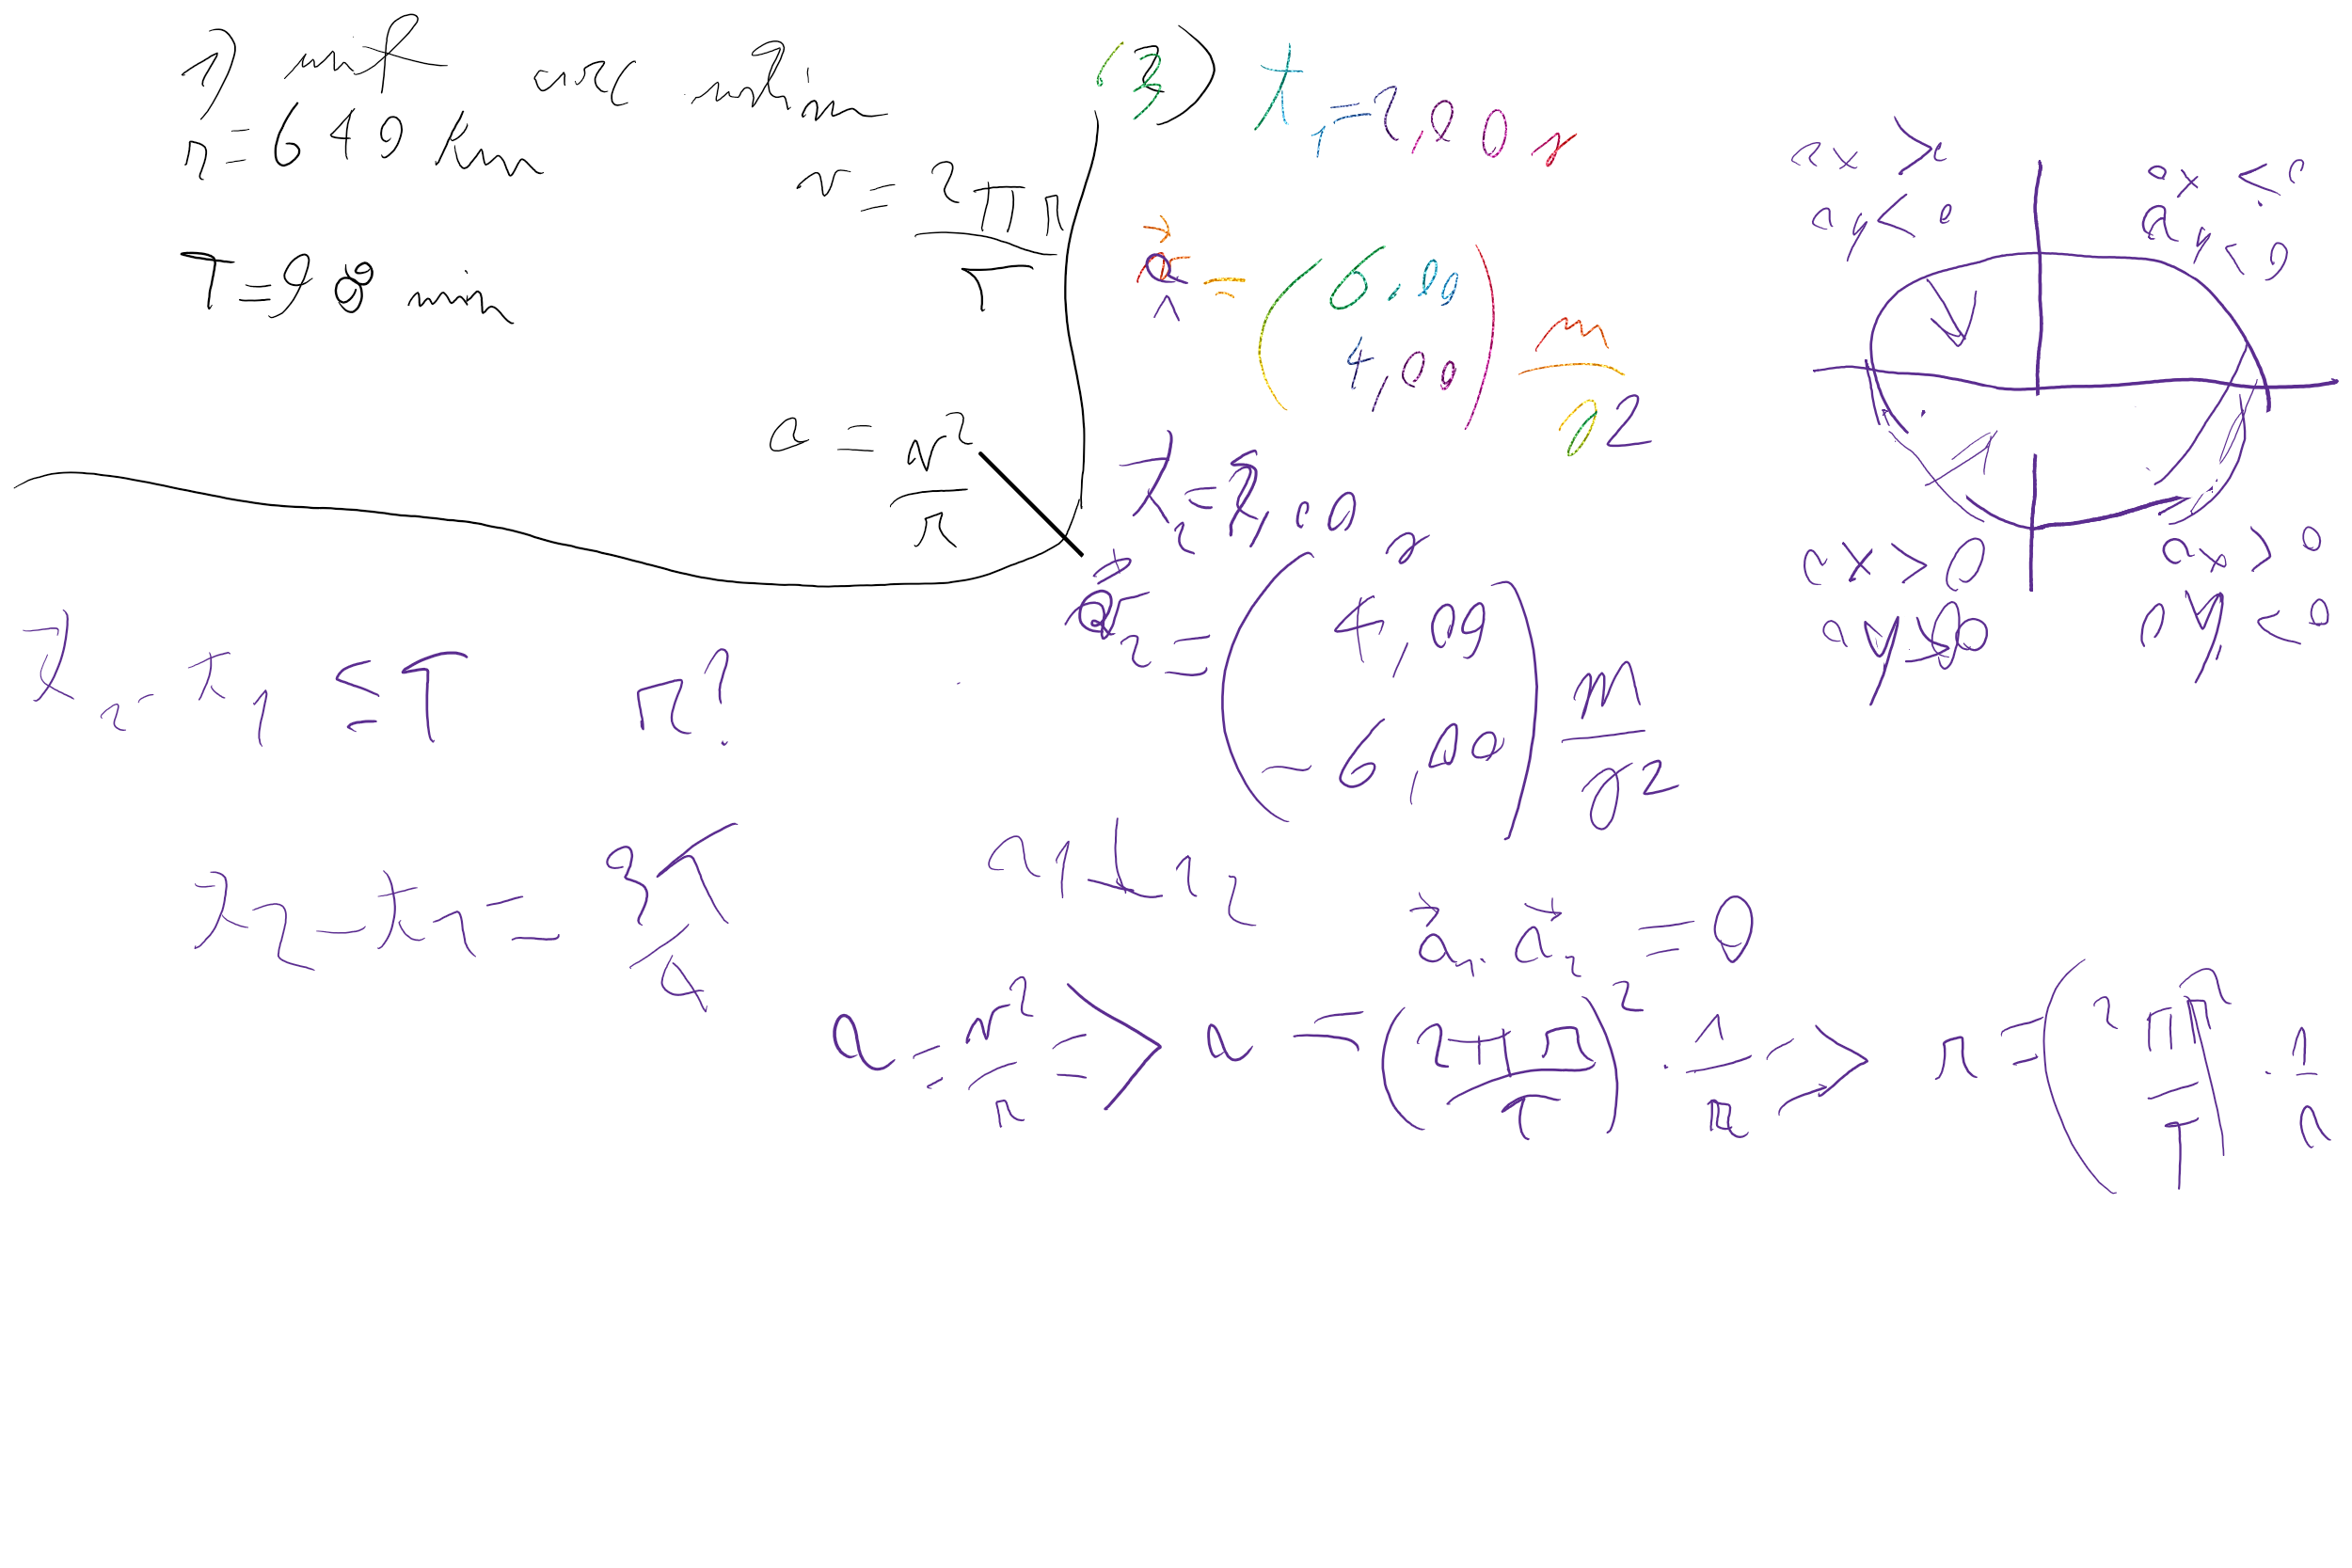 1) unif acc motion
r = 649 km
v = 2πr / T
T = 98 min
a = v² / r
(3) t₁ = 2,00 s
a⃗₁ = (6,00 4,00) m / s²
t₂ = ,00 s
a⃗₂ = (4,00 -6,00) m / s²
ax > 0
ay < 0
ax < 0
ay < 0
ax > 0
ay > 0
ax > 0
ay < 0
t₂ - t₁ ≤ T r?
t₂ - t₁ = 3T / 4
a₁ ⊥ a₂
a⃗₁ · a⃗₂ = 0
a = v² / r => a = (2πr / T)² · 1 / r => r = (2πr / T)² · 1 / a